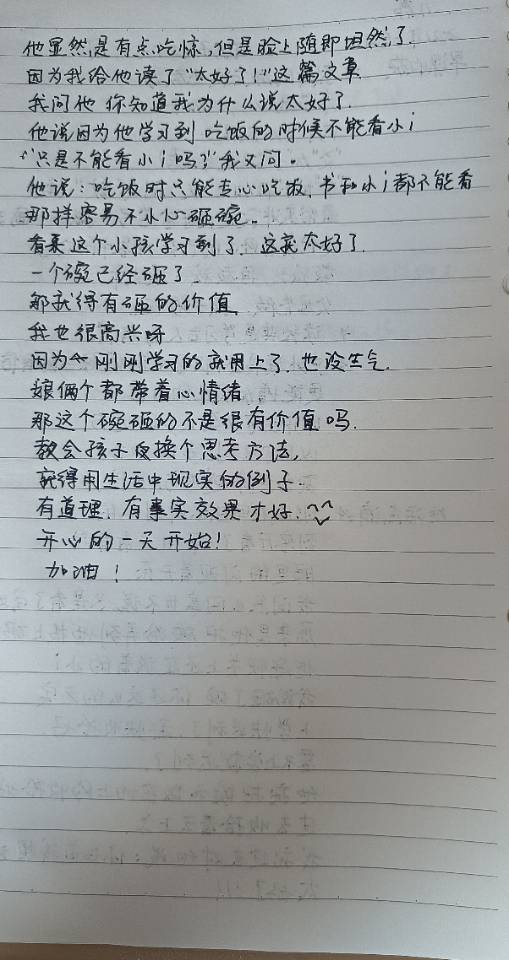 他显然是有点吃惊，但是脸上随即坦然了
因为我给他读了“太好了！”这篇文章
我问他 你知道我为什么说太好了
他说因为他学习到 吃饭的时候不能看小i
“只是不能看小i吗？”我又问。
他说：吃饭时只能专心吃饭，书和小i都不能看
那样容易不小心砸碗。
看来这个小孩学习到了 这就太好了
一个碗已经砸了
那就得有砸的价值
我也很高兴呀
因为 刚刚学习的就用上了 也没生气
娘俩个都带着心情绪
那这个碗砸的不是很有价值吗
教会孩子反换个思考方法，
就得用生活中现实的例子
有道理，有事实效果才好
开心的一天开始！
加油！